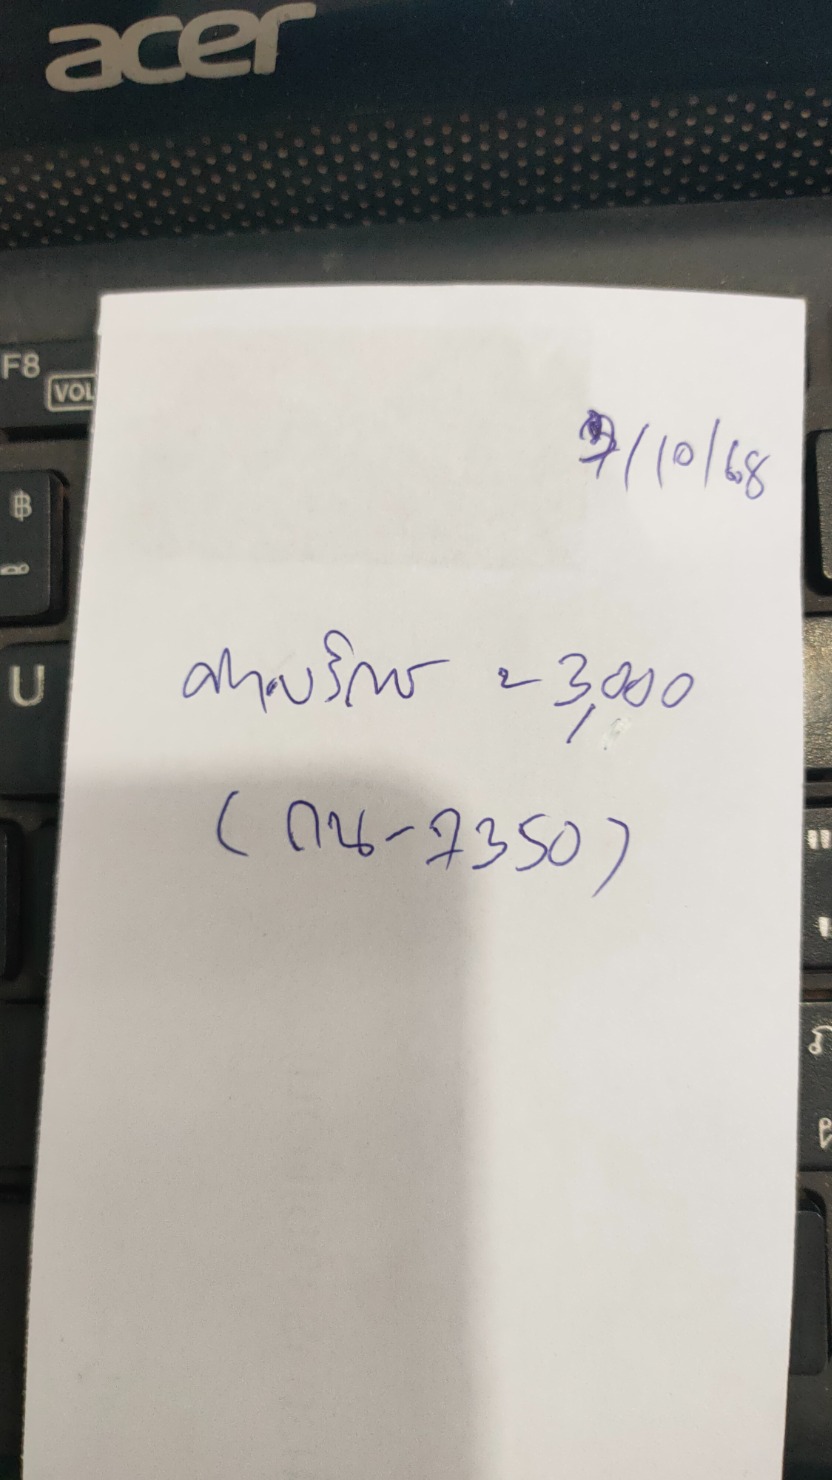 acer
F8
VOL
7/10/68
฿
U
ค่าบริการ = 3,000
(กน-7350)